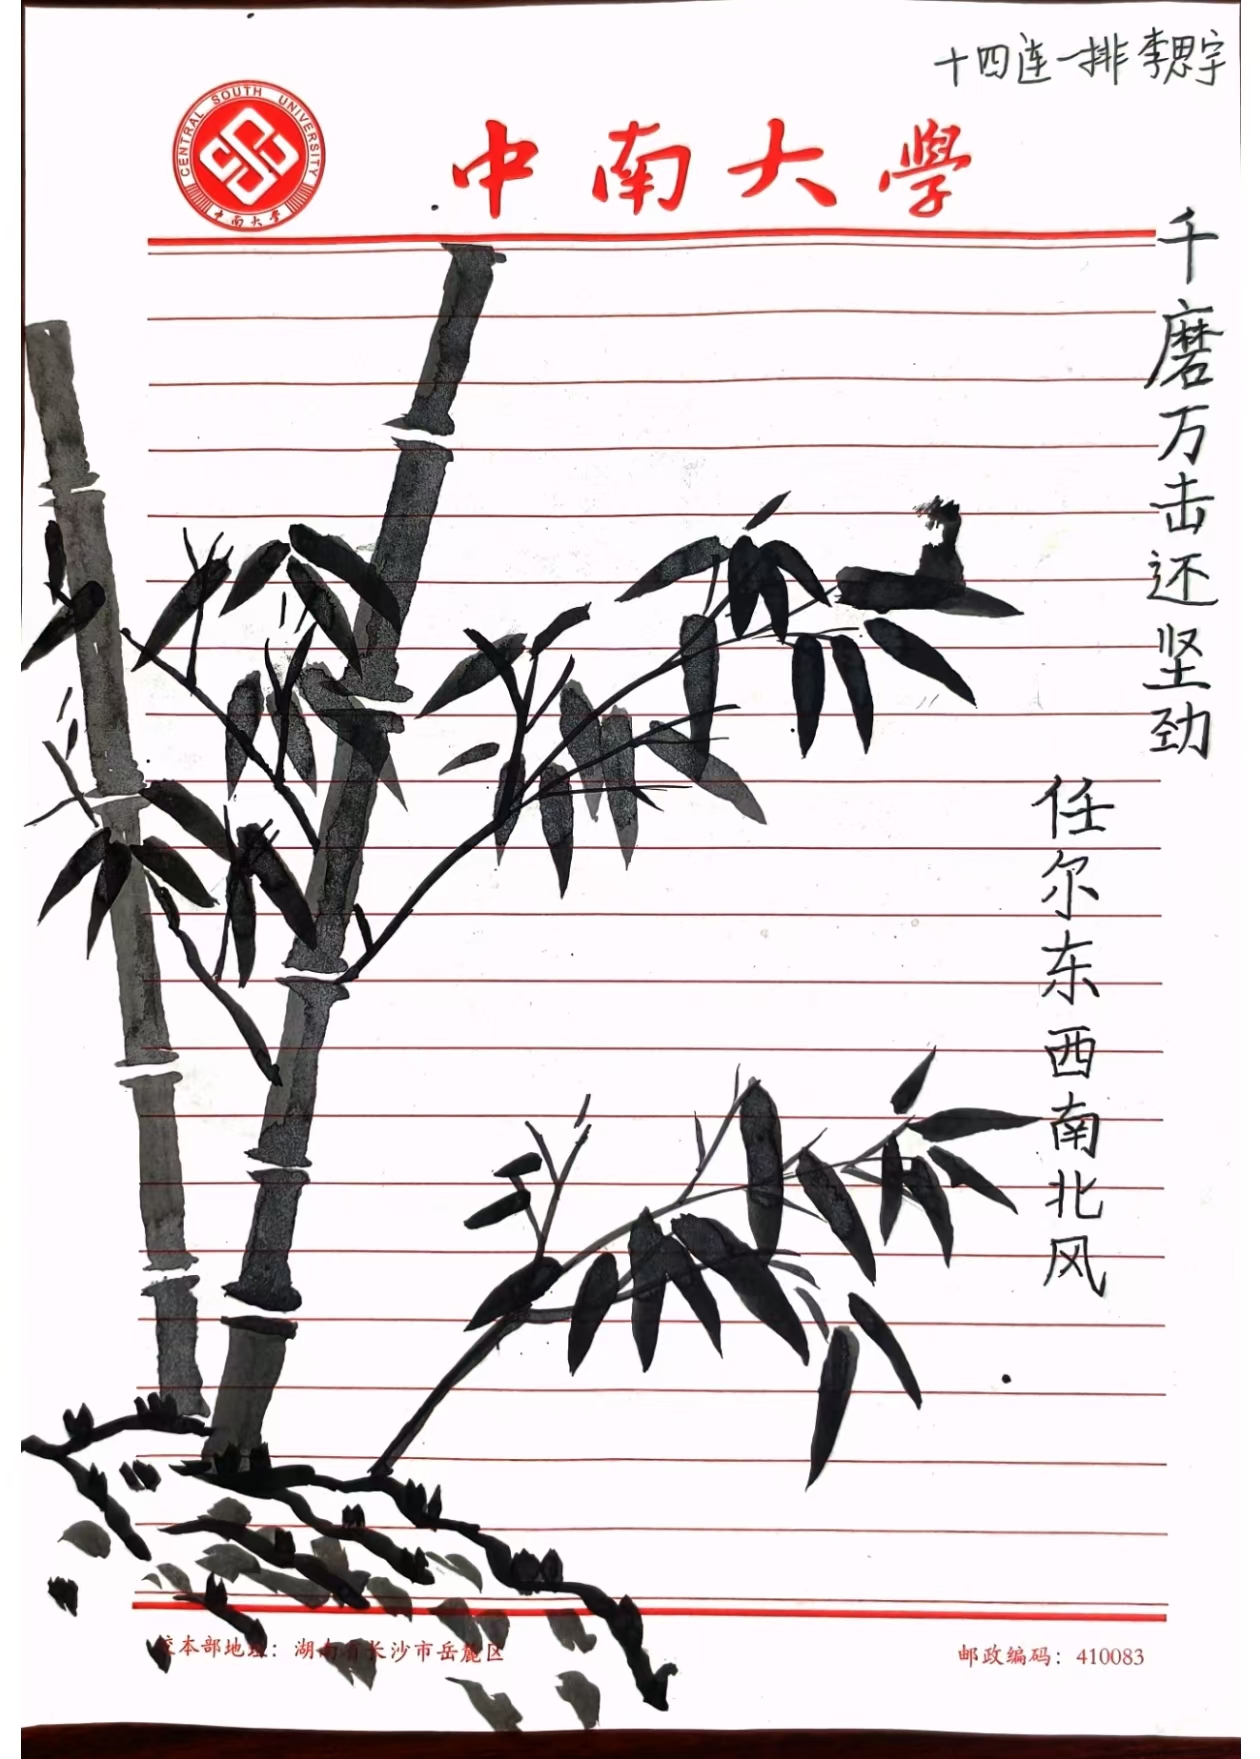 十四连一排 李思宇
CENTRAL SOUTH UNIVERSITY
中南大学
中南大學
千磨万击还坚劲
任尔东西南北风
校本部地址：湖南省长沙市岳麓区
邮政编码：410083